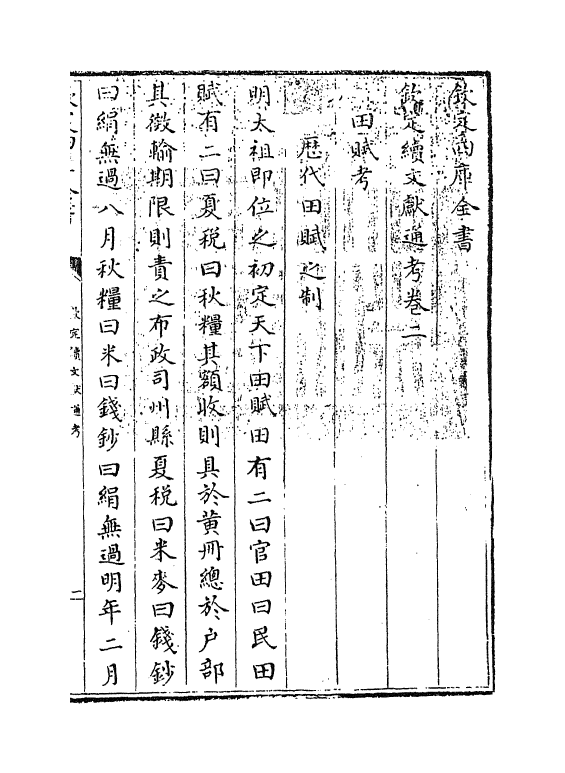 欽定四庫全書
欽定續文獻通考卷二
田賦考
歷代田賦之制
明太祖即位之初定天下田賦田有二曰官田曰民田
賦有二曰夏税曰秋糧其額收則具於黄冊總於户部
其徵輸期限則責之布政司州縣夏税曰米麥曰錢鈔
曰絹無過八月秋糧曰米曰錢鈔曰絹無過明年二月
欽定續文獻通考
二